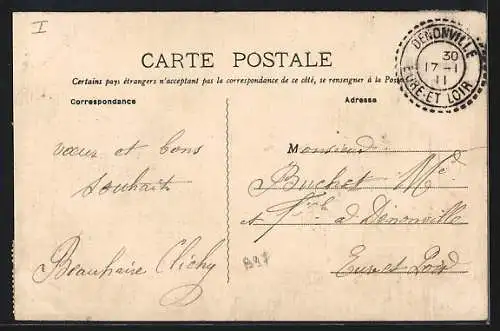 I
CARTE POSTALE
Certains pays étrangers n'acceptant pas la correspondance de ce côté, se renseigner à la Poste
Correspondance
Adresse
DENONVILLE
30
17 - 1
11
EURE-ET-LOIR
vœux et bons
souhaits
Beauhaire Clichy
Monsieur
Buchet Md
et à Dénonville
Eure et Loir
B97